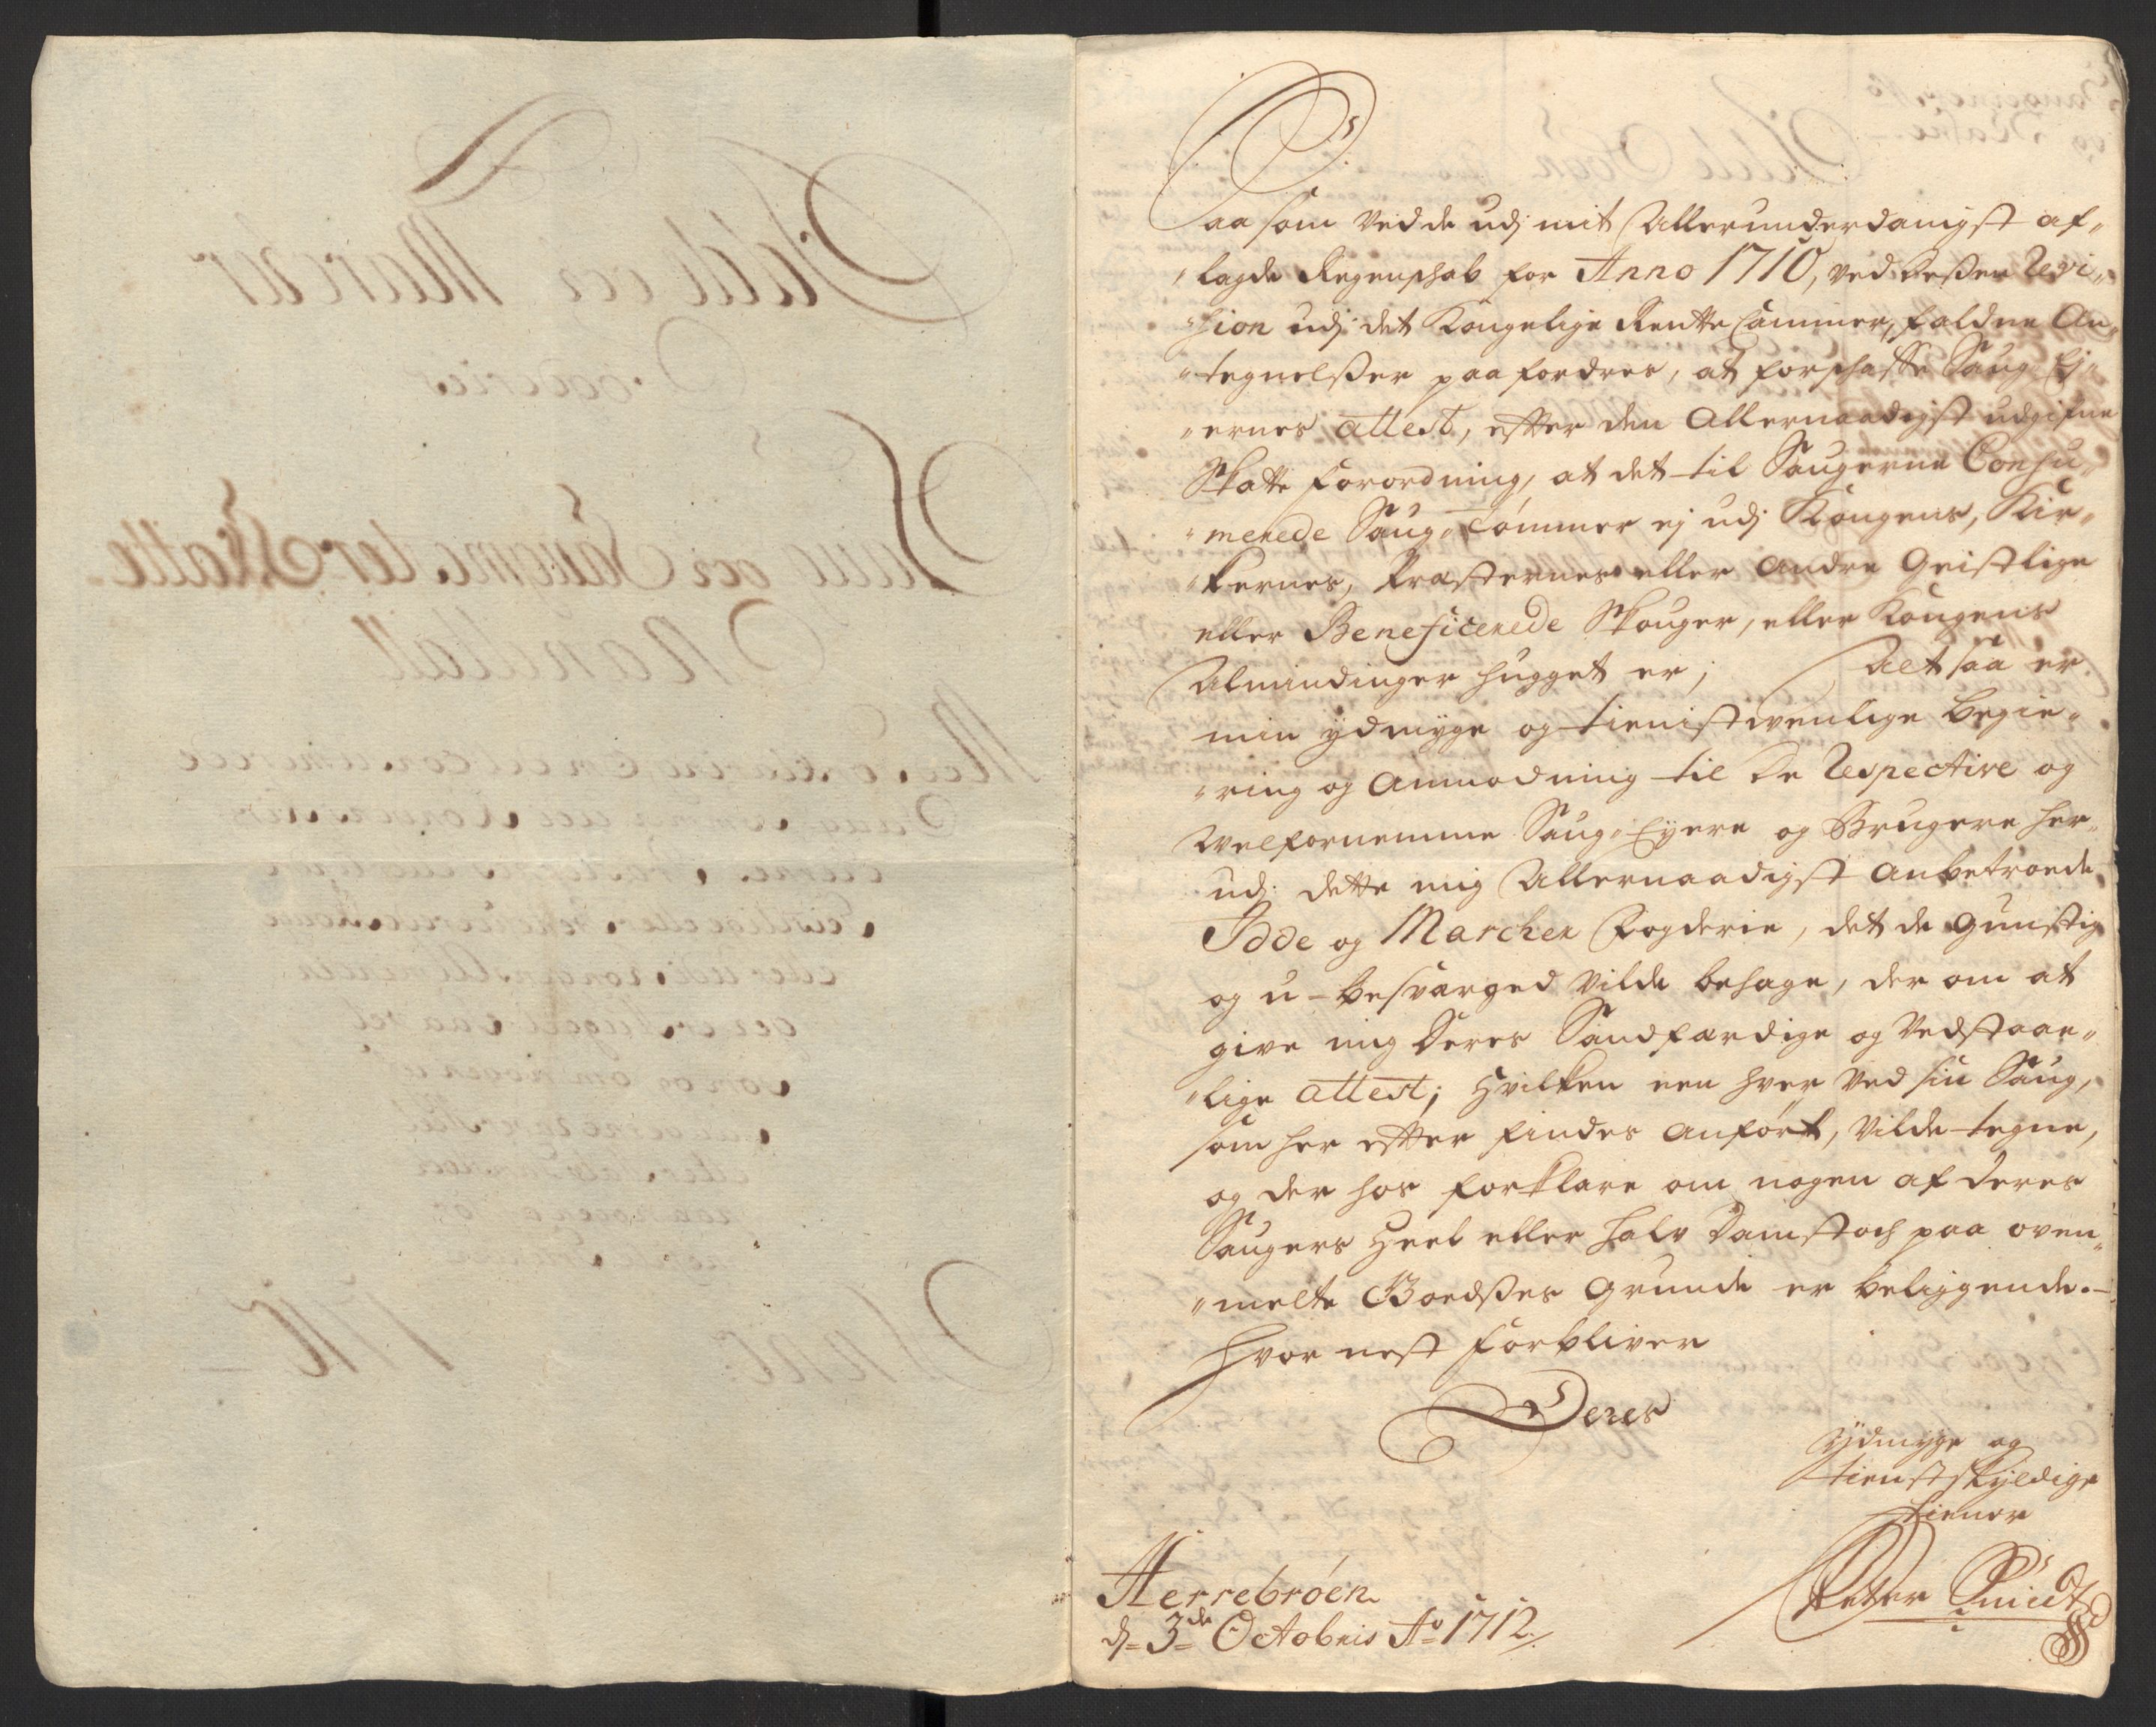 Saasom ved de udj mit Allerunderdanigst af„
„lagde Regenskab for Anno 1710, ved deßen Revi„
„sion udj det Kongelige Rentte Cammer, faldne An„
„tegnelßer paafordres, at forskaffe Saug Ej„
„ernes attest, efter den Allernaadigst udgifne
Skatte Forordning, at det til Saugerne Consu„
„merede Saug„Tømmer ej udj Kongens, Kir„
„kernes, Præsternes eller andre Geistlige
eller Beneficerede Skouger, eller Kongens
Almindinger hugget er; Alt saa er
min ydmyge og tienistvenlige begie„
„ring og anmodning til de Respective og
Velfornemme Saug„Eyere og Brugere her„
udj dette mig Allernaadigst anbetroede
Idde og Marcher Fogderie, det de gunstig
og u-besværged vilde behage, der om at
give mig deres Sandfærdige og Vedstaae„
„lige attest; Hvilken een hver ved sin Saug,
som her efter findes anført, vilde tegne,
og der hos forklare om nogen af deres
Saugers Heel eller halv Damstoch paa oven„
„melte Goedßes Grunde er beliggende.–
Hvor nest forbliver
Deres
Ydmyge og
tienstskyldige
tiener
Peter
Herrebröen
d= 3de Octobris Ao 1712.